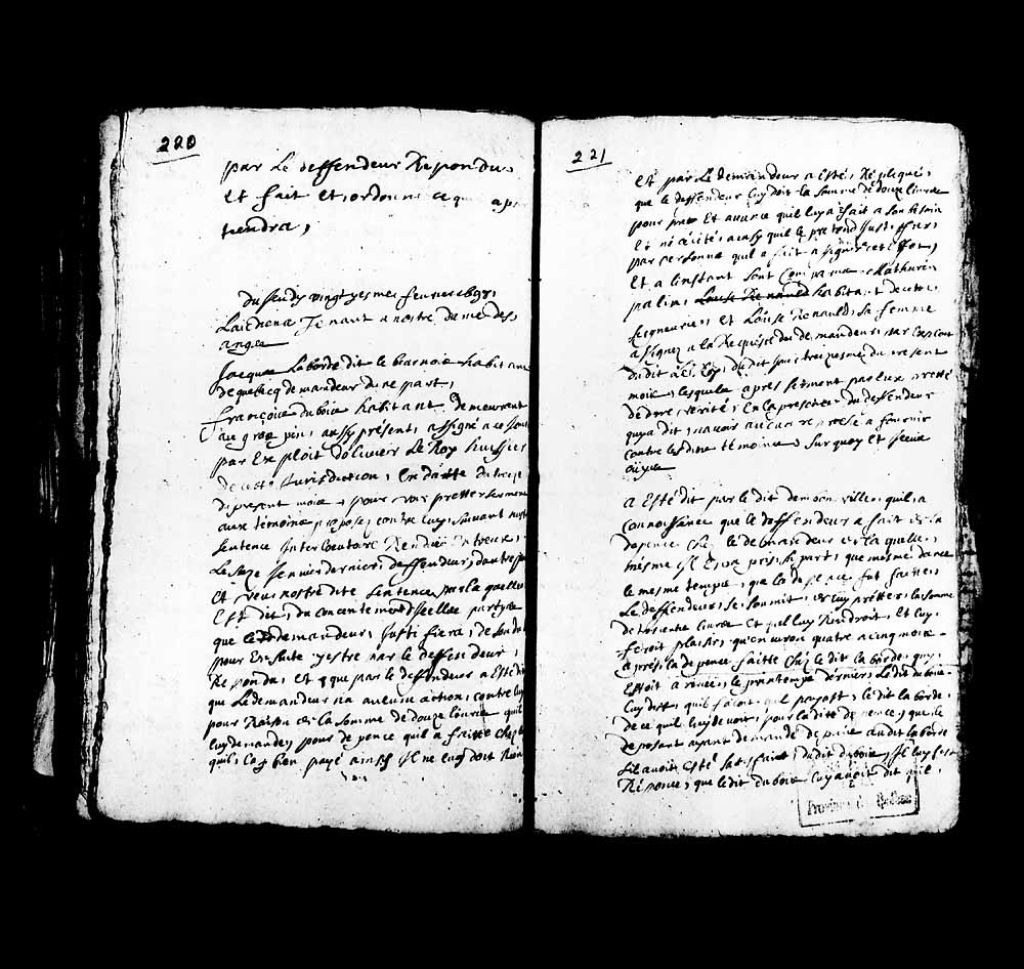 220
par Le deffendeur Repondu
et fait et ordonné ce qui ap
tiendra,
Du lundy vingt yesme feuvrier 1698,
L'audience Tenant a nostre dame des
anges
Jacques Laborde dit le bearnois habitant
de quebecq demandeur dune part,
françois du bois habitant demeurant
au gros pin, aussy présent, assigné a ce jour
par Exploit d'olivier Le Roy huissier
de cette Jurisdiction, En datte du treize
du present mois, pour voir pretter serment
aux témoins proposez contre luy, suivant nostre
sentence Interlocutoire Rendue Entreux,
Le seize Janvier dernier, deffendeur, dautre part
Et veu nostre dite sentence par la quelle
Est dit, du consentement d'icelles partyes
que le demandeur, Justifiera, de son
pour Ensuite yestre par le deffendeur,
Repondu, et que par le deffendeur a Esté dit
que Le demandeur na aucune action, contre luy
pour Raison de la somme de douze livres quil
luy demande, pour depence quil a faitte chez
quil, l'a bien payé ainsy Il ne luy doit Rien
221
Et par Le demandeur a Esté, Repliqué,
que le deffendeur luy doit la somme de douze livres
pour pret Et avance quil luy a fait a son besoin
Et nécécité, ainsy quil le pretend Justiffier,
par personne quil a fait assigner a cet effet,
Et a linstant sont Comparus Mathurin
palin, Louise Renauld habitant de cette
seigneurie, et Louise Renauld, sa femme
assignez a la Requiste du demandeur, par Exploit
dudit Le Roy, dudit jour treizyesme du present
mois, lesquels apres serment par eux pretté
de dire verité, En la presence du deffendeur
quy a dit, navoir aucun reproche a fournir
contre lesdits témoins, Sur quoy et
ouyes
a Esté dit par le dit quil, a
Connoissance que le deffendeur a fait de la
depence chez le demandeur de la quelle,
mesme Il En a pris sa part, que mesme dans
le mesme temps, que la depence fut faitte,
Le deffendeur, se soumit, de luy pretter, la somme
de trente livres Et quil luy Rendroit, et luy,
feroit plaisir, qu'environ quatre a cinq mois
apres la depence faitte chez le dit la borde, quy,
Estoit a , le printemps dernier, Le dit du bois
luy dit, quil quil payast, le dit la borde,
de ce quil luy devoit, pour la dite depence, que le
deposant ayant demandé de puis audit la borde
Sil avoit Esté satisfait, dudit dubois, Il luy fist
Réponce, que le dit du bois luy avoit dit quil,
Province de Québec